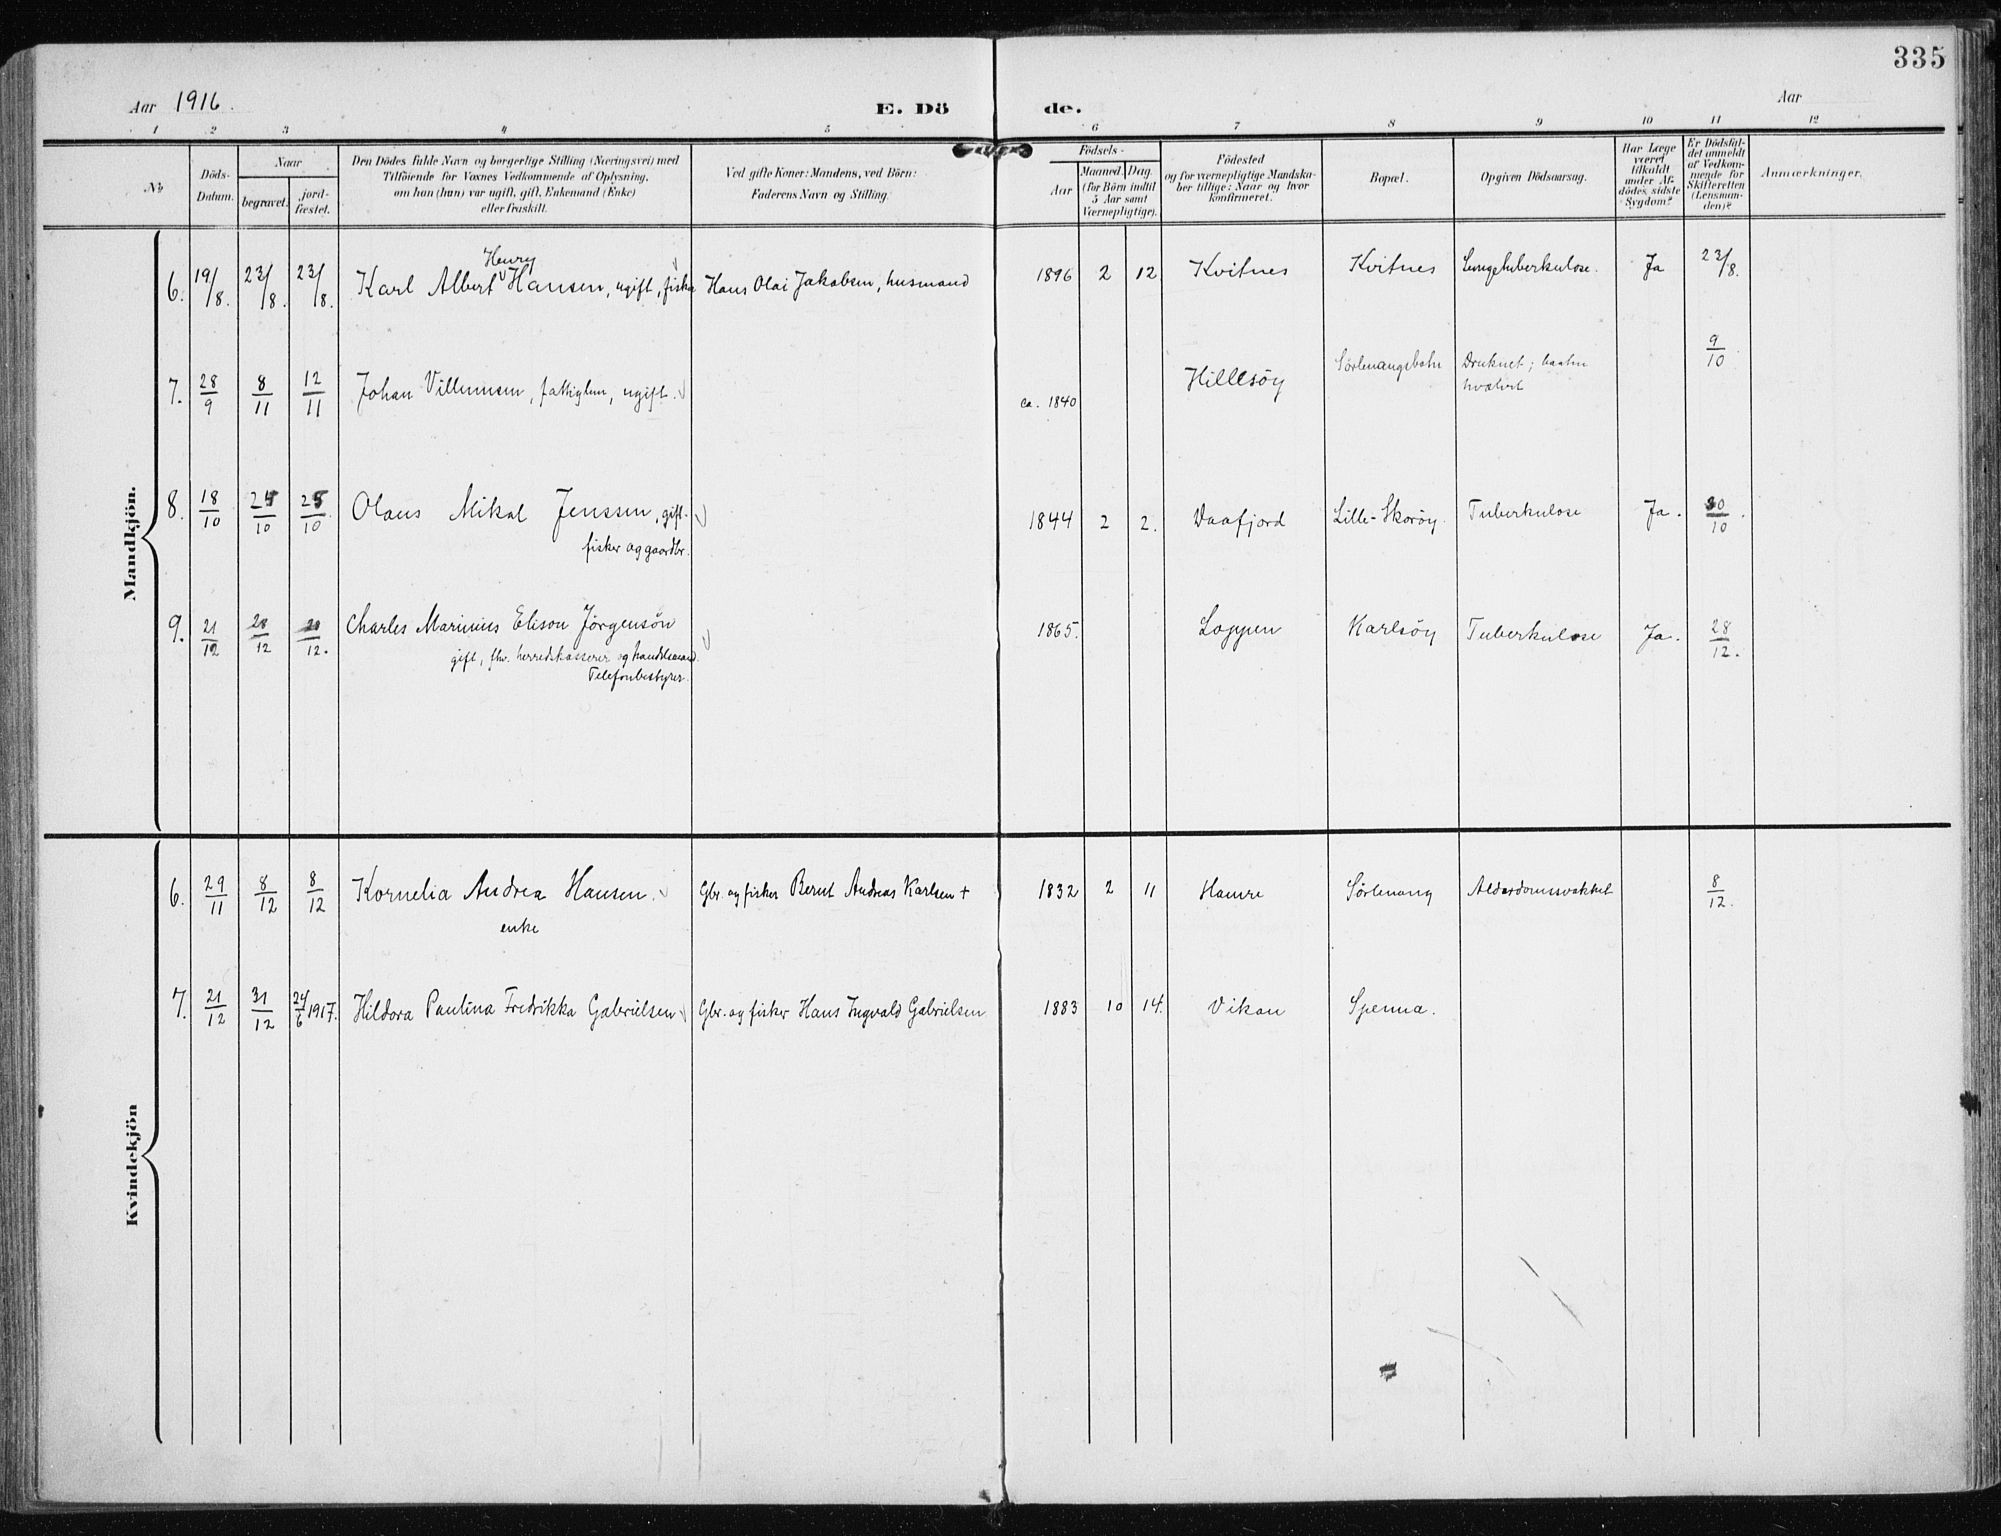 335
Aar 1916.
E. Dö de.
Aar
1 2 3 4 5 6 7 8 9 10 11 12
No
Döds-Datum.
Naar
begravet.
jord-fæstet.
Den Dödes fulde Navn og borgerlige Stilling (Næringsvei) med
Tilföiende for Voxnes Vedkommende af Oplysning,
om han (hun) var ugift, gift, Enkemand (Enke)
eller fraskilt.
Ved gifte Koner: Mandens, ved Börn:
Faderens Navn og Stilling.
Födsels-
Aar
Maaned. Dag.
(for Börn indtil
5 Aar samt
Værnepligtige).
Födested
og for værnepligtige Mandska-
ber tillige: Naar og hvor
konfirmeret.
Bopæl.
Opgiven Dödsaarsag.
Har Læge
været
tilkaldt
under Af-
dödes sidste
Sygdom?
Er Dödsfal-
det anmeldt
af Vedkom-
mende for
Skifteretten
(Lensman-
den)?
Anmærkninger.
Mandkjön.
6. 19/8. 23/8. 23/8. Karl Albert Henry Hansen, ugift, fisker Hans Olai Jakobsen, husmand 1896 2 12 Kvitnes Kvitnes Lungetuberkulose. Ja 23/8.
7. 28/9 8/11 12/11 Johan Villumsen, fattiglem, ugift. ca. 1840 Hillesöy Sörlenangsbotn Druknet; baaten 9/10.
hvælvet
8. 18/10 24/10 25/10 Olaus Mikal Jenssen, gift. 1844 2 2. Daafjord Lille-Skoröy. Tuberkulose Ja. 30/10.
fisker og gaardbr.
9. 21/12 28/12 28/12. Charles Marinius Elison Jörgensön 1865. Loppen Karlsöy Tuberkulose Ja. 28/12.
gift, fhv. herredskasserer og handelsmand.
Telefonbestyrer.
Kvindekjön
6. 29/11 8/12 8/12 Kornelia Andrea Hansen. Gbr. og fisker Bernt Andreas Karlsen + 1832 2 11 Hamre Sörlenang Alderdomssvakhet 8/12.
enke
7. 21/12 31/12 24/6 1917. Hildora Paulina Fredrikka Gabrielsen Gbr. og fisker Hans Ingvald Gabrielsen 1883 10 14. Vikan Spenna.